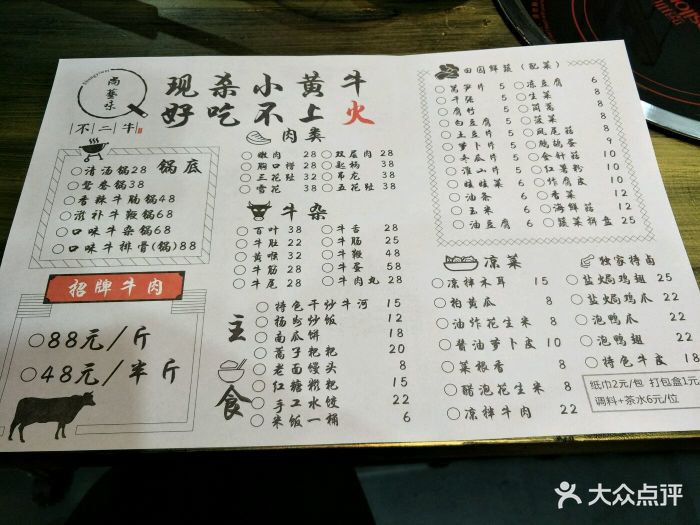 尚藝味
不二牛
现杀小黄牛
好吃不上火
锅底
清汤锅28
鸳鸯锅38
香辣牛肠锅48
滋补牛鞭锅68
口味牛杂锅68
口味牛排骨(锅)88
招牌牛肉
88元/斤
48元/半斤
肉类
嫩肉 28
胸口捞 28
三花趾 38
雪花 38
双层肉 28
匙柄 38
吊龙 38
五花趾 38
牛杂
百叶 38
牛肚 22
黄喉 32
牛筋 28
牛尾 28
牛舌 28
牛肠 25
牛鞭 48
牛蛋 58
牛肉丸 28
主食
特色干炒牛河 15
扬州炒饭 12
南瓜饼 18
蒿子粑粑 20
老面馒头 8
红糖糍粑 15
手工水饺 22
米饭一桶 6
田园鲜蔬(配菜)
莴笋片 5
千张 5
腐竹 5
白豆腐 5
土豆片 5
萝卜片 5
冬瓜片 5
淮山片 5
娃娃菜 5
油条 5
玉米 5
油豆腐 5
冻豆腐 6
生菜 8
茼蒿 8
凤尾菇 6
鹌鹑蛋 9
金针菇 6
红薯粉 6
炸腐皮 8
香菜 8
海鲜菇 8
蔬菜拼盘 25
凉菜
凉拌木耳 15
拍黄瓜 8
油炸花生米 8
酱油萝卜皮 10
菜根香 8
醋泡花生米 8
凉拌牛肉 22
独家特卤
盐焗鸡翅 25
盐焗鸡爪 22
泡鸭爪 22
泡鸭翅 22
特色牛皮 18
纸巾2元/包 打包盒1元
调料+茶水6元/位
大众点评